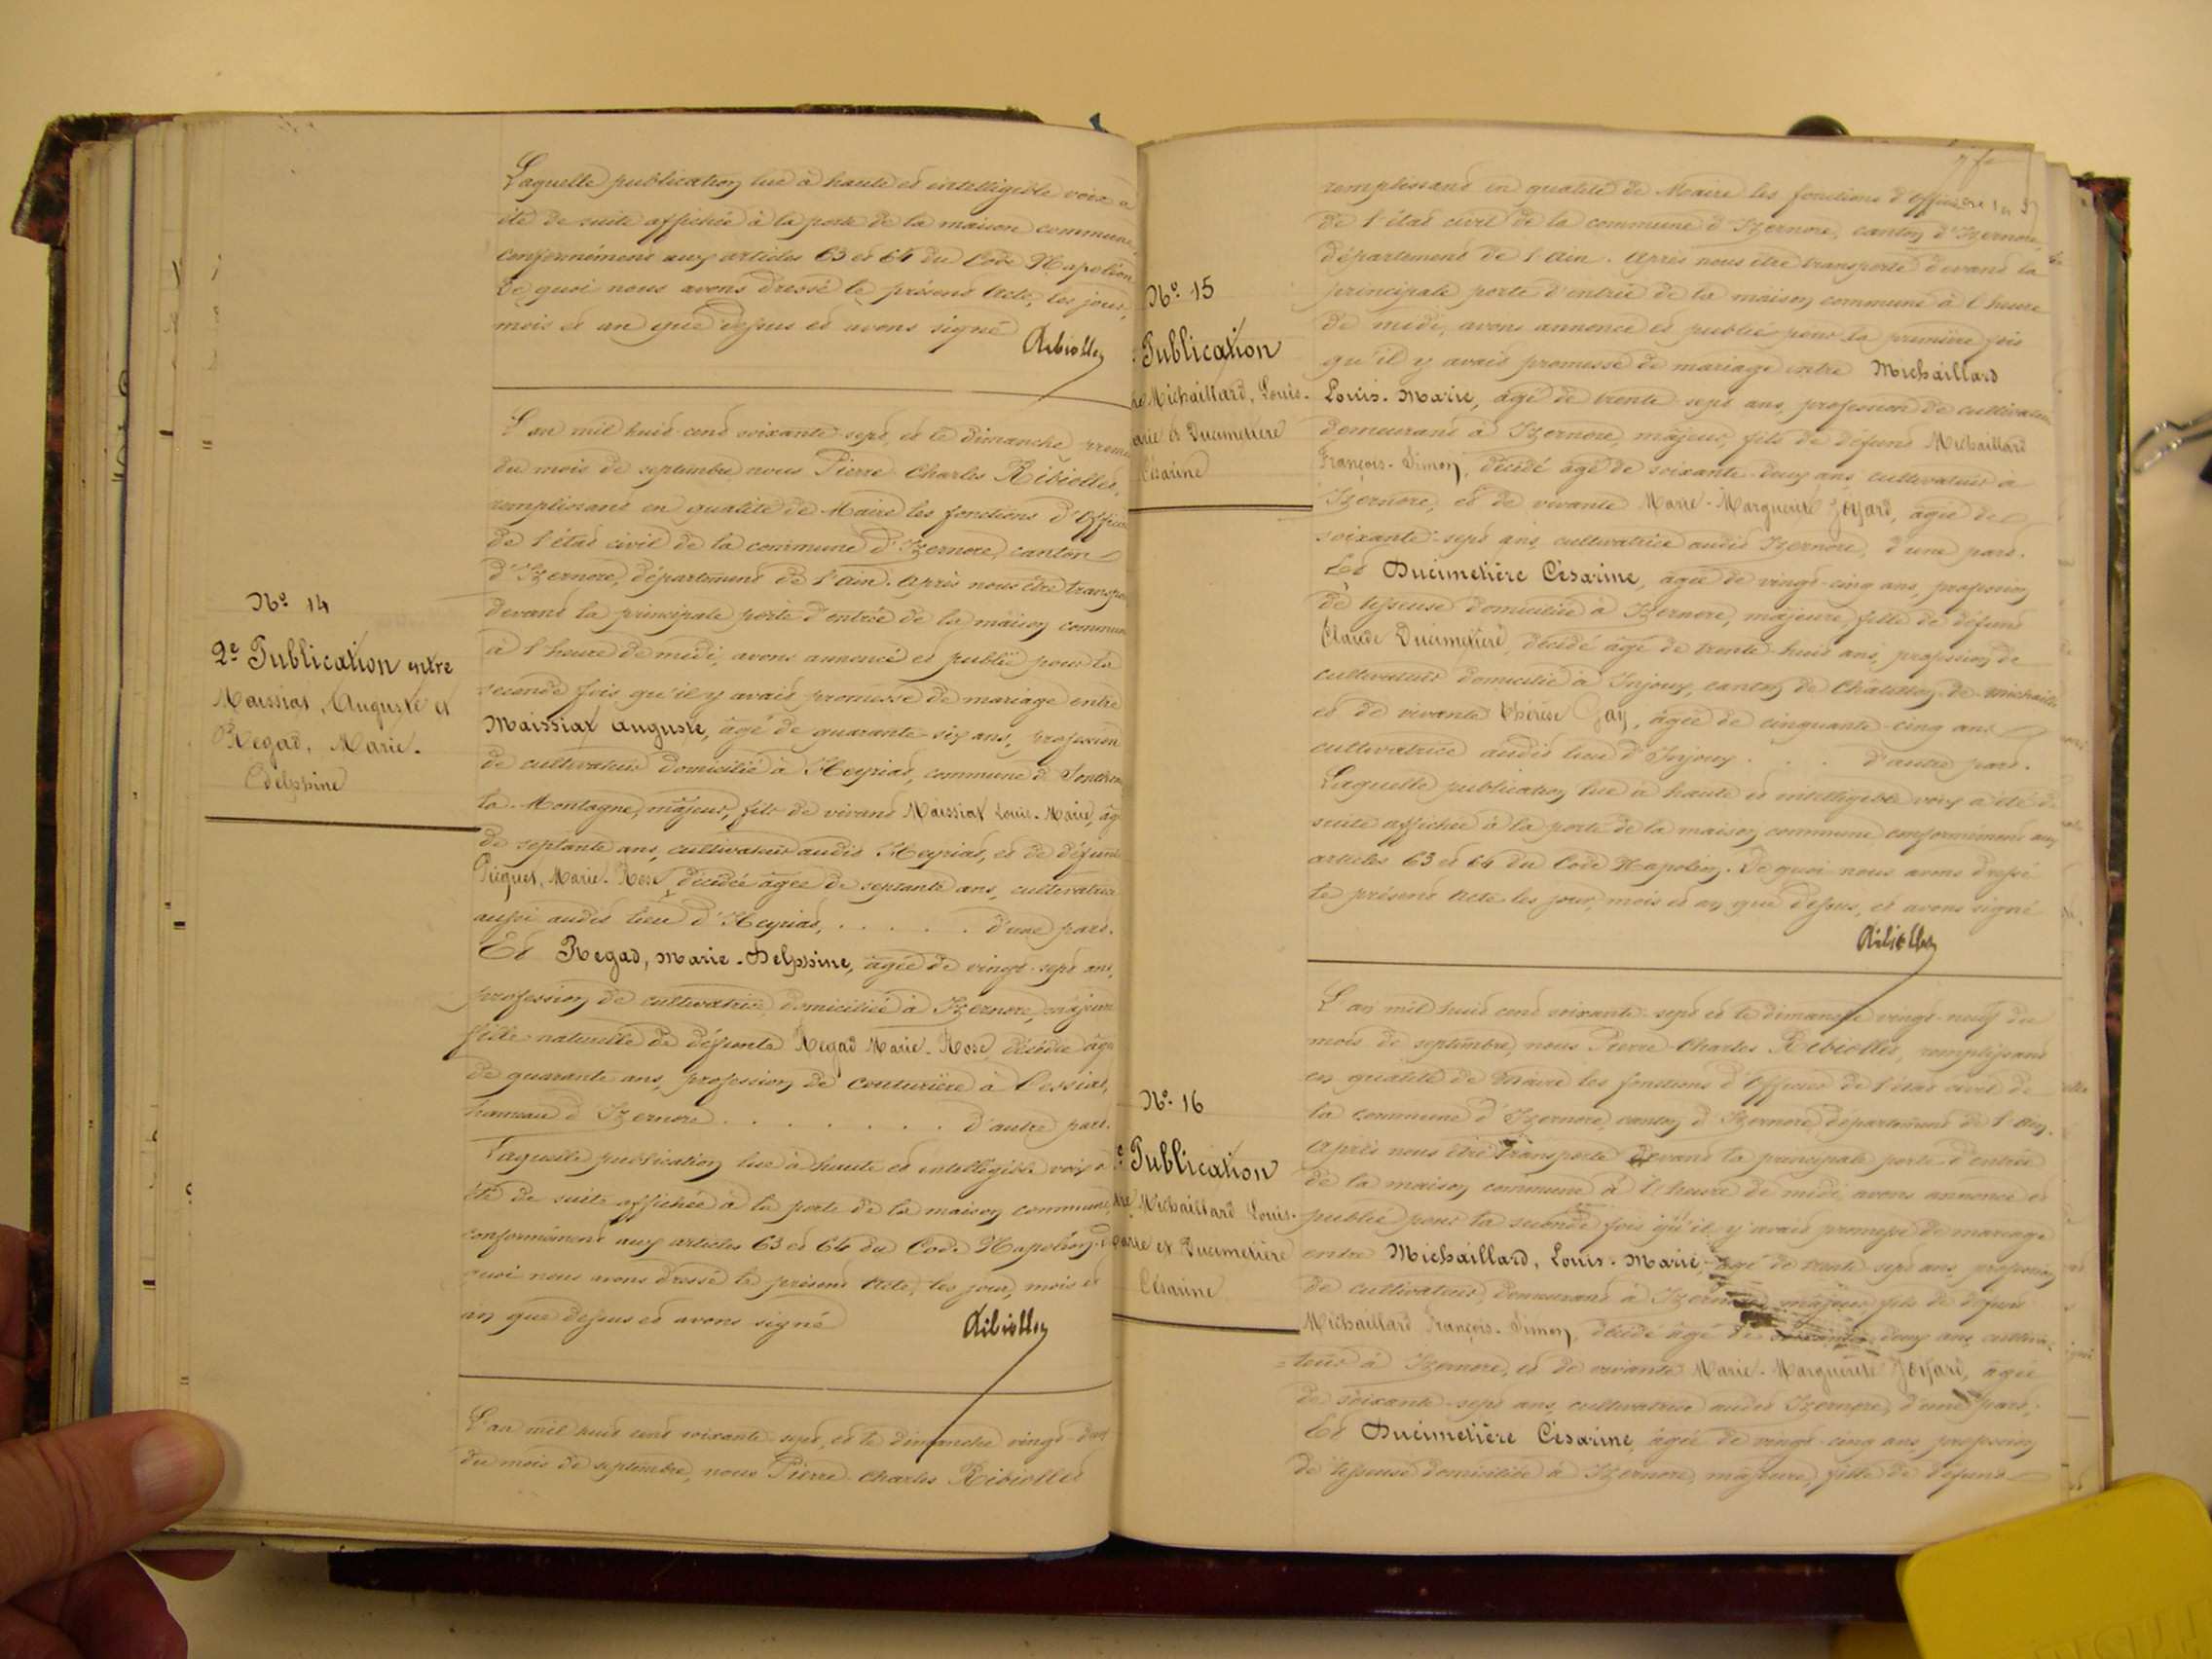 Laquelle publication lue à haute et intelligible voix a
été de suite affichée à la porte de la maison commune,
conformément aux articles 63 et 64 du Code Napoléon
De quoi nous avons dressé le présent Acte, les jour,
mois et an que dessus et avons signé
Ribiolles
Nº 14
2e Publication entre
Maissiat, Auguste et
Regad, Marie-
Delphine
L'an mil huit cent soixante-sept, et le dimanche premier
du mois de septembre, nous Pierre Charles Ribiolles,
remplissant en qualité de Maire les fonctions d'Officier
de l'état civil de la commune d'Izernore, canton
d'Izernore, département de l'Ain. Après nous être transporté
devant la principale porte d'entrée de la maison commune
à l'heure de midi, avons annoncé et publié pour la
seconde fois qu'il y avait promesse de mariage entre
Maissiat Auguste, âgé de quarante-six ans, profession
de cultivateur domicilié à Heyriat, commune de Sonthonnax
la-Montagne, majeur, fils de vivant Maissiat Louis-Marie, âgé
de septante ans, cultivateur audit Heyriat, et de défunte
Marie-Rose, décédée âgée de septante ans, cultivatrice
aussi audit lieu d'Heyriat, . . . . . d'une part.
Et Regad, Marie-Delphine, âgée de vingt-sept ans,
profession de cultivatrice domiciliée à Izernore, majeure
fille naturelle de défunte Regad Marie-Rose, décédée âgée
de quarante ans, profession de couturière à Cessiat,
hameau d'Izernore . . . . . . . d'autre part.
Laquelle publication lue à haute et intelligible voix a
été de suite affichée à la porte de la maison commune,
conformément aux articles 63 et 64 du Code Napoléon. De
quoi nous avons dressé le présent Acte, les jour, mois et
an que dessus et avons signé
Ribiolles
L'an mil huit cent soixante-sept, et le dimanche vingt-deux
du mois de septembre, nous Pierre Charles Ribiolles
Nº 15
Publication
Michaillard, Louis-
arie et Ducimetière
Césarine
remplissant en qualité de Maire les fonctions d'Officier
de l'état civil de la commune d'Izernore, canton d'Izernore,
département de l'Ain. Après nous être transporté devant la
principale porte d'entrée de la maison commune à l'heure
de midi, avons annoncé et publié pour la première fois
qu'il y avait promesse de mariage entre Michaillard
Louis-Marie, âgé de trente-sept ans, profession de cultivateur
demeurant à Izernore, majeur, fils de défunt Michaillard
François-Simon, décédé âgé de soixante-deux ans cultivateur à
Izernore, et de vivante Marie-Marguerite Joyard, âgée de
soixante-sept ans, cultivatrice audit Izernore, d'une part.
Et Ducimetière Césarine, âgée de vingt-cinq ans, profession
de tisseuse domiciliée à Izernore, majeure, fille de défunt
Claude Ducimetière, décédé âgé de trente-huit ans, profession de
cultivateur domicilié à Injoux, canton de Châtillon-de-Michaille
et de vivante Thérèse Gay, âgée de cinquante-cinq ans
cultivatrice audit lieu d'Injoux . . . d'autre part.
Laquelle publication lue à haute et intelligible voix a été de
suite affichée à la porte de la maison commune conformément aux
articles 63 et 64 du Code Napoléon. De quoi nous avons dressé
le présent Acte les jour, mois et an que dessus, et avons signé
Ribiolles
Nº 16
Publication
Michaillard Louis-
arie et Ducimetière
Césarine
L'an mil huit cent soixante-sept et le dimanche vingt-neuf du
mois de septembre, nous Pierre-Charles Ribiolles, remplissant
en qualité de Maire les fonctions d'Officier de l'état civil de
la commune d'Izernore, canton d'Izernore, département de l'Ain.
Après nous être transporté devant la principale porte d'entrée
de la maison commune à l'heure de midi, avons annoncé et
publié pour la seconde fois qu'il y avait promesse de mariage
entre Michaillard, Louis-Marie, âgé de trente-sept ans, profession
de cultivateur, demeurant à Izernore, majeur, fils de défunt
Michaillard François-Simon, décédé âgé de soixante-deux ans, cultiva-
=teur à Izernore, et de vivante Marie-Marguerite Joyard, âgée
de soixante-sept ans, cultivatrice audit Izernore, d'une part,
Et Ducimetière Césarine, âgée de vingt-cinq ans, profession
de tisseuse domiciliée à Izernore, majeure, fille de défunt